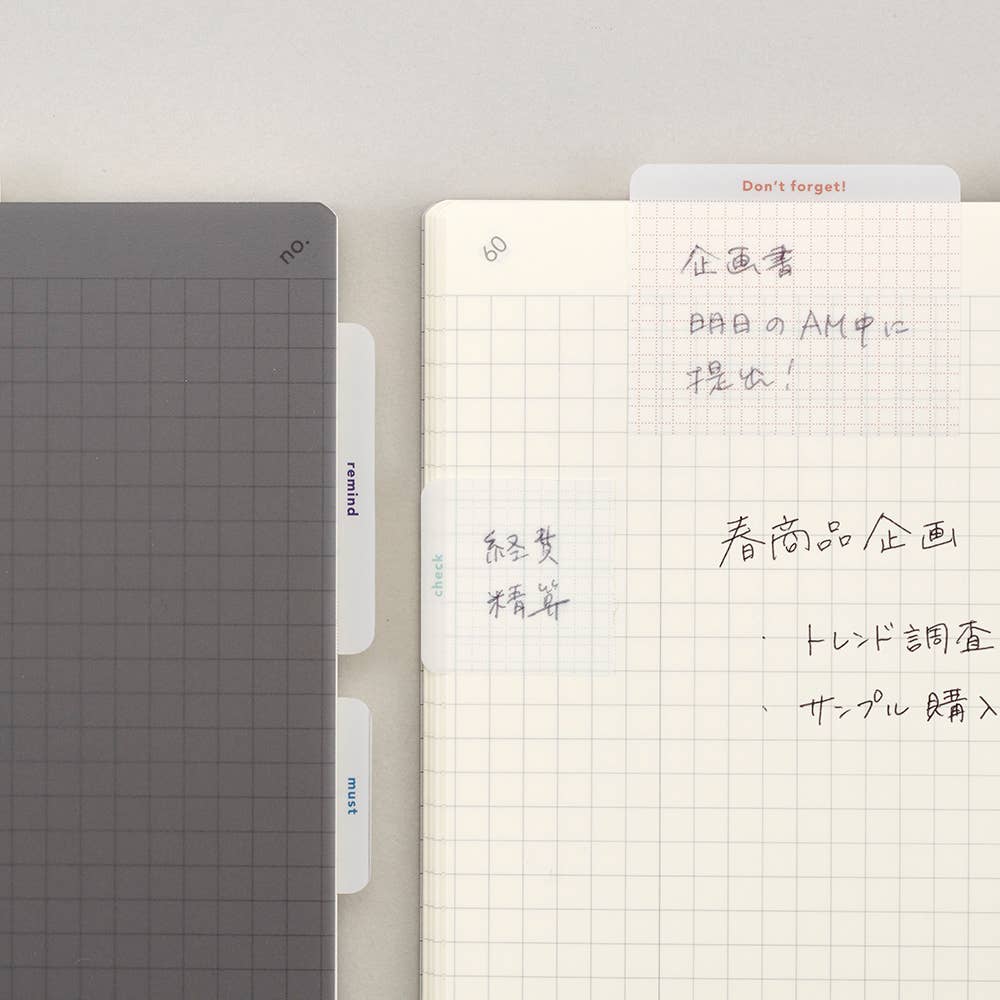 no.
remind
must
60
Don't forget!
企画書
明日の AM中に
提出！
check
経費
精算
春商品企画
・ トレンド調査
・ サンプル購入